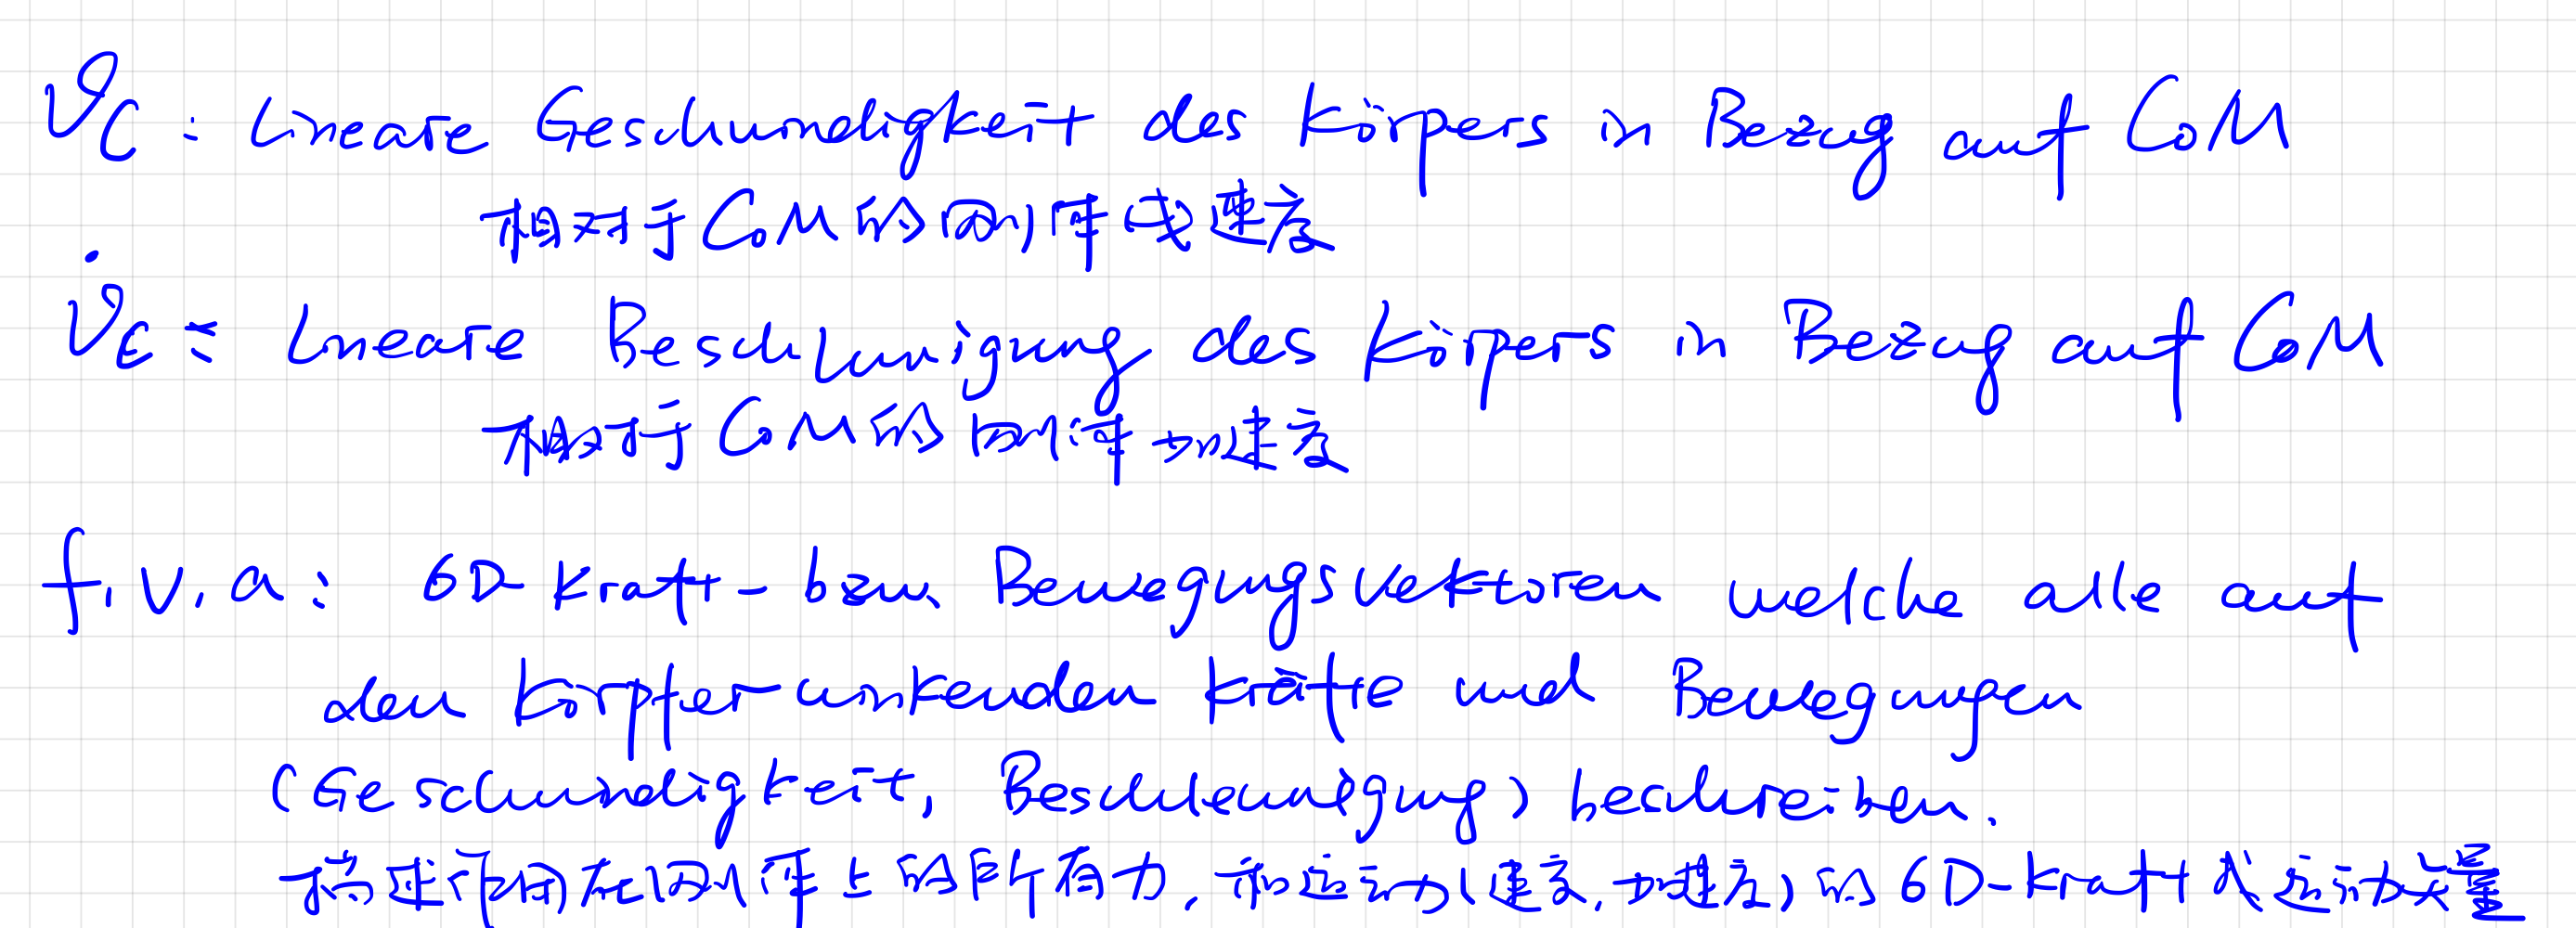 v_C : Lineare Geschwindigkeit des Körpers in Bezug auf CoM
相对于CoM的刚体线速度
v̇_C = Lineare Beschleunigung des Körpers in Bezug auf CoM
相对于CoM的刚体加速度
f, v, a : 6D-Kraft- bzw. Bewegungsvektoren welche alle auf
den Körper wirkenden Kräfte und Bewegungen
(Geschwindigkeit, Beschleunigung) beschreiben.
描述作用在刚体上的所有力, 和运动(速度, 加速度)的 6D-Kraft 或运动矢量